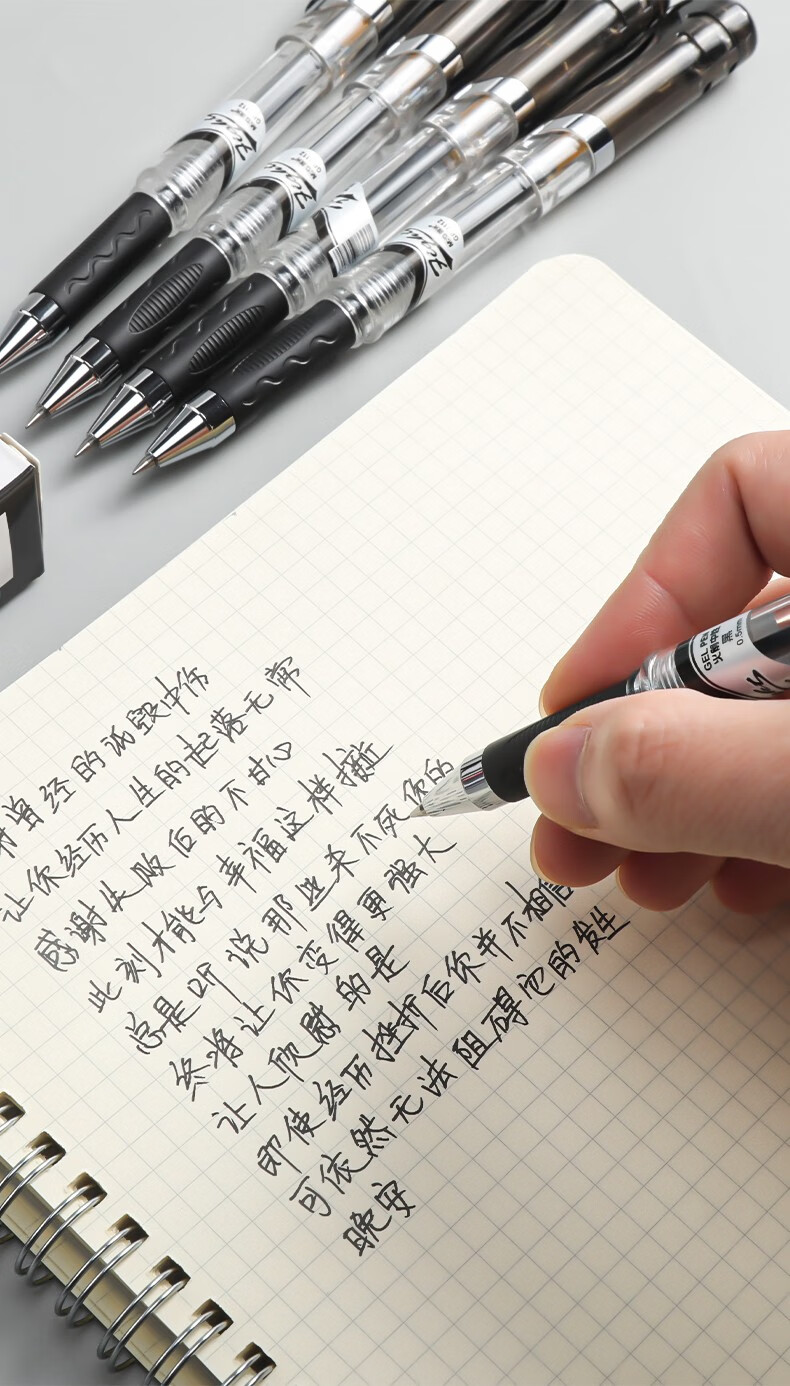 曾经的诋毁中伤
让你经历人生的起落无常
感谢失败后的不甘心
此刻才能与幸福这样接近
总是听说那些杀不死你的
终将让你变得更强大
让人欣慰的是
即使经历挫折后你并不相信
可依然无法阻碍它的发生
晚安
M&G
GEL PEN
黑
0.5mm